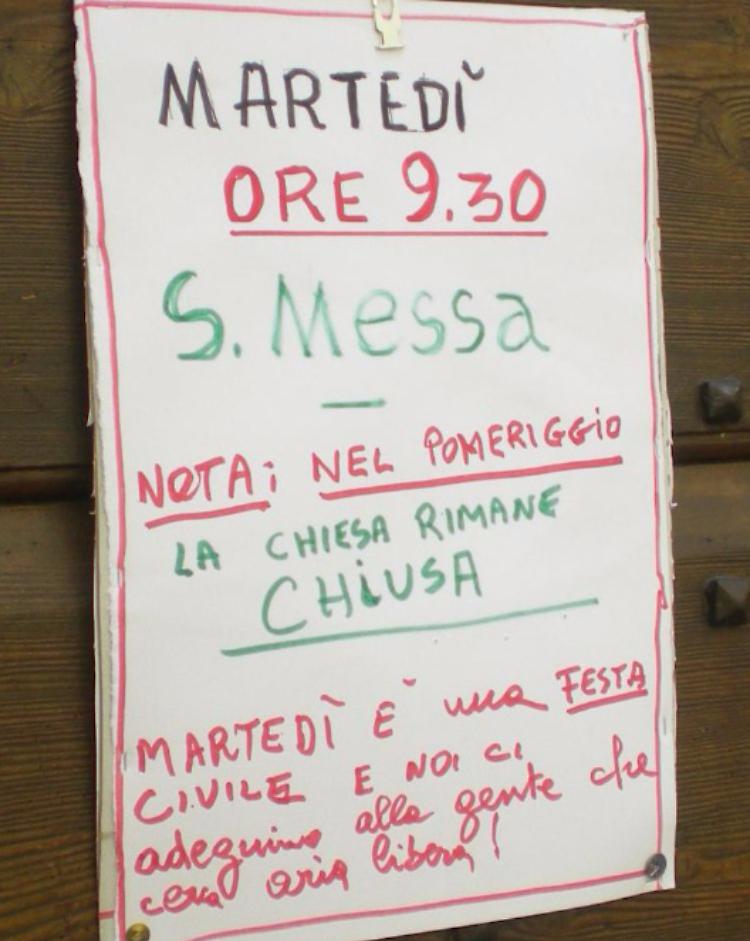 MARTEDÌ
ORE 9.30
S. Messa
NOTA: NEL POMERIGGIO
LA CHIESA RIMANE
CHIUSA
MARTEDÌ E' una FESTA
CIVILE E NOI CI
adeguiamo alla gente che
cerca aria libera!